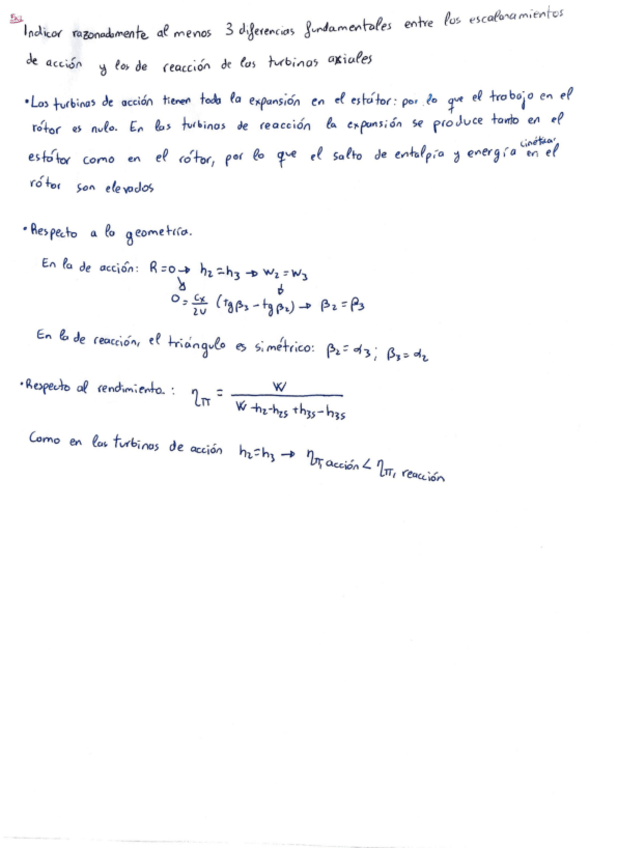 Ex.
Indicar razonadamente al menos 3 diferencias fundamentales entre los escalonamientos
de acción y los de reacción de las turbinas axiales
• Las turbinas de acción tienen toda la expansión en el estátor: por lo que el trabajo en el
rótor es nulo. En las turbinas de reacción la expansión se produce tanto en el
estátor como en el rótor, por lo que el salto de entalpía y energía cinética en el
rótor son elevados
• Respecto a la geometría.
En la de acción: R=0 → h₂=h₃ → w₂=w₃
0 = Cx/2U (tgβ₃ - tgβ₂) → β₂=β₃
En la de reacción, el triángulo es simétrico: β₂=α₃; β₃=α₂
• Respecto al rendimiento.: ηTT = W / (W + h₂-h₂s + h₃s-h₃s)
Como en las turbinas de acción h₂=h₃ → ηTT, acción < ηTT, reacción